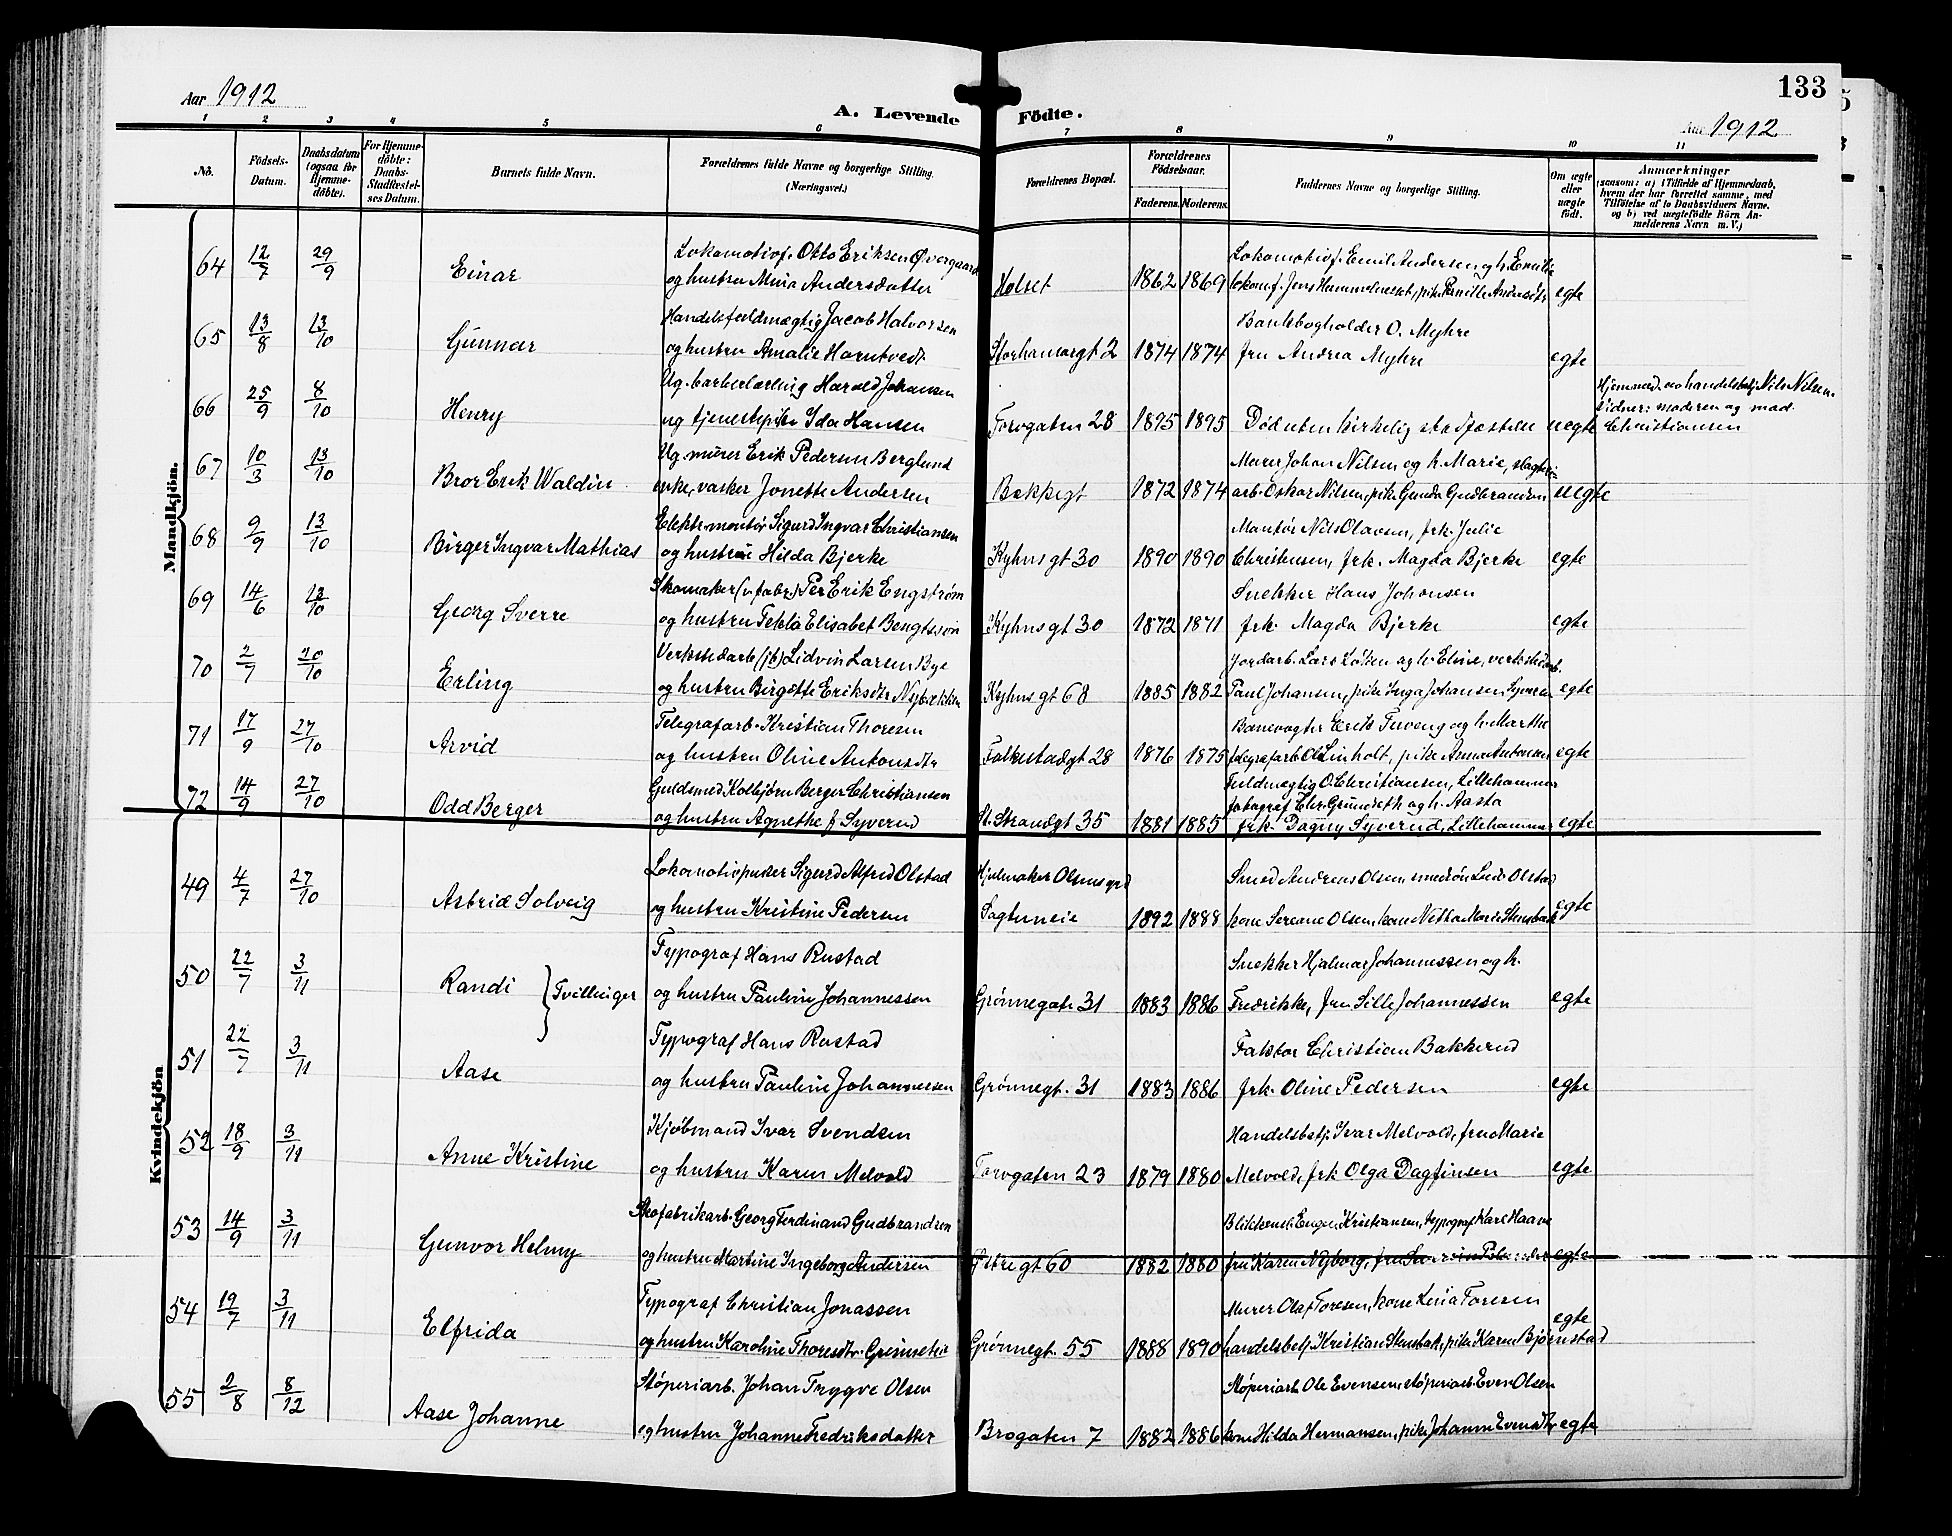 133
Aar 1912
A. Levende Födte.
Aar 1912
1 2 3 4 5 6 7 8 9 10 11
No. Födsels-Datum. Daabsdatum (ogsaa for Hjemme-döbte). For Hjemme-döbte: Daabs-Stadfæstel-ses Datum. Barnets fulde Navn. Forældrenes fulde Navne og borgerlige Stilling. (Næringsvei.) Forældrenes Bopæl. Forældrenes Födselsaar. Faderens. Moderens. Faddernes Navne og borgerlige Stilling. Om ægte eller uægte födt. Anmærkninger (saasom: a) i Tilfælde af Hjemmedaab, hvem der har forrettet samme, med Tilföielse af to Daabsvidners Navne, og b) ved uægtefödte Börn An-melderens Navn m. V.)
Mandkjön.
64 12/7 29/9 Einar Lokomotivf. Otto Eriksen Øvergaard Lokomotivf. Emil Andersen og h. Emilie
og hustru Mina Andersdatter Holset 1862 1869 lokomf. Jens Hammelnesset, pike Pernille Andersdtr egte
65 13/8 13/10 Gunnar Handelsfuldmægtig Jacob Halvorsen Bankbogholder O. Myhre
og hustru Amalie Horntvedt Storhamargt 2 1874 1874 fru Andrea Myhre egte
66 25/9 8/10 Henry Ug. barberlærling Harald Johansen Hjemmed. av handelsbetj. Nils Nilsen
ug tjenestepike Ida Hansen Torvgaten 28 1895 1895 Död uten kirkelig stadfæstelse uegte vidner: moderen og mad. Christiansen
67 10/3 13/10 Bror Erik Waldin Ug. murer Erik Pedersen Berglund Murer Johan Nilsen og h. Marie, slagteri-
enke, vasker Jonette Andersen Bekkegt 1872 1874 arb. Oskar Nilsen, pike Gunda Gudbrandsen uegte
68 9/9 13/10 Birger Ingvar Mathias Elektr. montör Sigurd Ingvar Christiansen Montör Nils Olavsen, frk. Julie
og hustru Hilda Bjerke Kyhns gt 30 1890 1890 Christensen, frk. Magda Bjerke egte
69 14/6 13/10 Georg Sverre Skomaker (v. fabr.) Per Erik Engström Snekker Hans Johansen
og hustru Tekla Elisabet Bengtsson Kyhns gt 30 1872 1871 frk. Magda Bjerke egte
70 2/7 20/10 Erling Verkstedarb. (jb) Lidvin Larsen Bye Jordarb. Lars Loten og h. Eline, verkstedarb.
og hustru Birgitte Eriksdtr Nybækken Kyhns gt 68 1885 1882 Paul Johansen, pike Inga Johansen Syversen egte
71 17/9 27/10 Arvid Telegrafarb. Kristian Thoresen Banevogter Erik Tuveng og h. Marthe
og hustru Oline Antonsdtr Falkestadgt 28 1876 1875 telegrafarb. Ol. Linholt, pike Anna Antonsen egte
72 14/9 27/10 Odd Berger Guldsmed Kolbjörn Berger Christiansen Fuldmegtig O. Christiansen, Lillehammer
fotograf Chr. Grundseth og h. Aasta
og hustru Agnethe f. Syverud St. Strandgt 35 1881 1885 frk. Dagny Syverud, Lillehammer egte
Kvindekjön
49 4/7 27/10 Astrid Solveig Lokomotivpusser Sigurd Alfred Olstad Hjulmaker Olsens grd Smed Andreas Olsen, smedsön Lude Olstad
og hustru Kristine Pedersen Sagtuneie 1892 1888 kone Sereane Olsen, kone Netta Marie Stensbak egte
50 22/7 3/11 Randi Tvillinger Typograf Hans Rustad Snekker Hjalmar Johannessen og h.
og hustru Pauline Johannessen Grönnegate 31 1883 1886 Fredrikke, fru Sille Johannessen egte
51 22/7 3/11 Aase Typograf Hans Rustad Faktor Christian Bakkerud
og hustru Pauline Johannessen Grönnegt. 31 1883 1886 frk. Oline Pedersen egte
52 18/9 3/11 Anne Kristine Kjöbmand Ivar Svendsen Handelsbetj. Ivar Melvold, fru Marie
og hustru Karen Melvold Torvgaten 23 1879 1880 Melvold, frk Olga Dagfinsen egte
53 14/9 3/11 Gunvor Helmy Skofabrikarb. Georg Ferdinand Gudbrandsen Blikkensl. Eugen Kristiansen, typograf Karl Haave
og hustru Martine Ingeborg Andersen Østre gt 60 1882 1880 fru Karen Nyborg, fru egte
54 19/7 3/11 Elfrida Typograf Christian Jonassen Murer Olaf Toresen, kone Lina Toresen
og hustru Karoline Thoresdtr. Grönnegt. 55 1888 1890 handelsbetj. Kristian Stensbak, pike Karen Bjørnstad egte
55 2/8 8/12 Aase Johanne Støperiarb. Johan Trygve Olsen Støperiarb. Ole Evensen, støperiarb. Even Olsen
og hustru Johanne Fredriksdatter Brogaten 7 1882 1886 kone Hilda Hermansen, pike Johanne Evensdtr egte